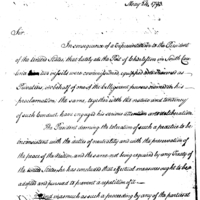 May 24, 1793.
Sir,
In consequence of a Representation to the President
of the United States, that lately at the Port of Charleston in South Caro
lina two vessels were equipped as
Privateers, on behalf of one of the belligerent powers
proclamation the same, together with the nature and tendency
of such conduct have engaged his serious attention and
The President deeming the toleration of such a practice to be
inconsistent with the duties of neutrality and with the preservation
of the peace of the Nation, and the same not being required by any Treaty of
the United States he has concluded that effectual measures ought to be
adopted and pursued to prevent a repetition of it
inasmuch as such a proceeding by any of the parties at